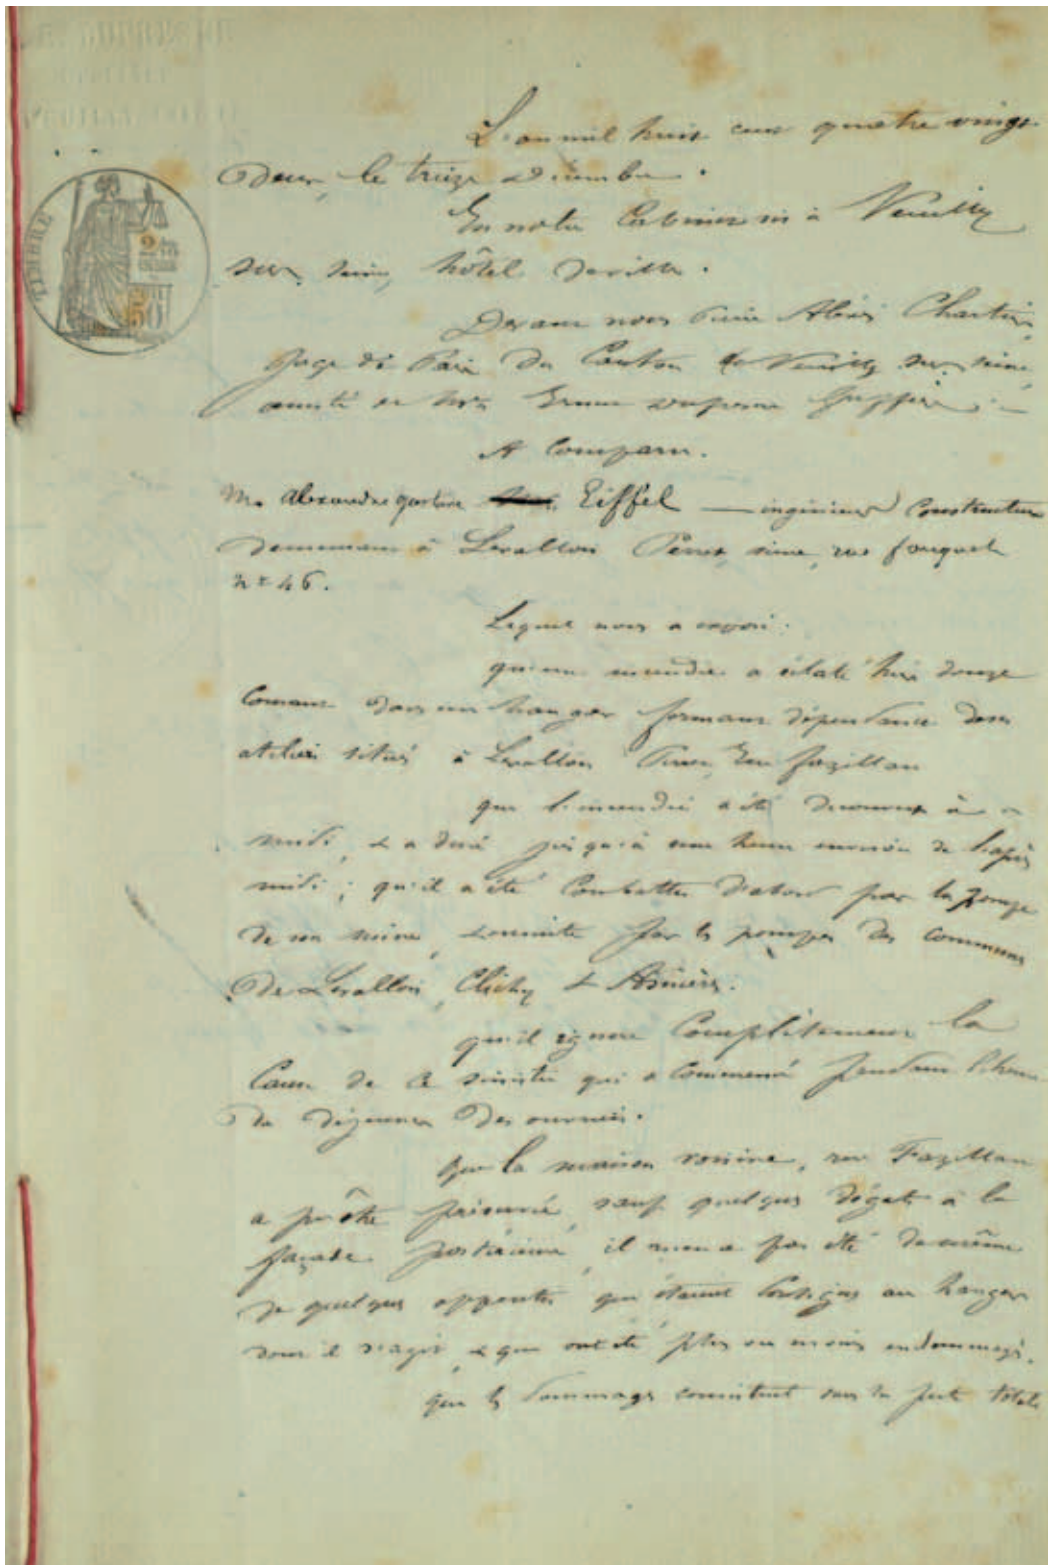 L'an mil huit cent quatre vingt
deux, le treize Décembre.
En notre Cabinet sis à Neuilly
sur Seine, hôtel de ville.
Devant nous Alexis Chartier,
Juge de Paix du Canton de Neuilly sur Seine
assisté de Greffier
A Comparu.
Mr Alexandre Gustave Eiffel — ingénieur Constructeur
demeurant à Levallois Perret, Seine, rue Fouquet
n° 46.
Lequel nous a exposé:
qu'un incendie a éclaté hier douze
Courant dans un hangar formant dépendance de ses
ateliers situés à Levallois Perret, rue Fazillau
que l'incendie a été découvert à
midi, & a duré jusqu'à une heure environ de l'après
midi; qu'il a été Combattu d'abord par la pompe
de son usine, ensuite par les pompes des communes
de Levallois, Clichy & Asnières.
qu'il ignore Complètement la
Cause de ce sinistre qui a Commencé pendant l'heure
du déjeuner des ouvriers.
Que la maison voisine, rue Fazillau
a pu être préservée, sauf quelques dégâts à la
façade postérieure, il n'en a pas été de même
de quelques appentis qui étaient Contigus au hangar
dont il s'agit & qui ont été plus ou moins endommagés.
que les dommages consistent dans la perte totale
TIMBRE
2
50